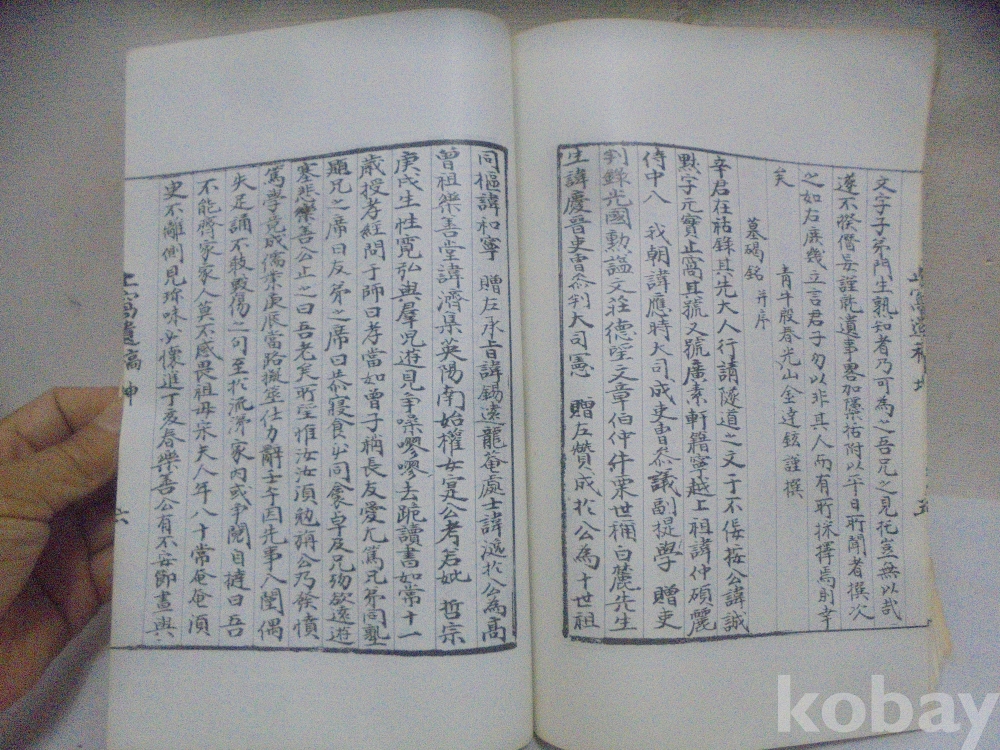 文字子弟門生熟知者乃可為之吾兄之見托豈無以哉
遂不揆僭妄謹就遺事畧加檃栝附以平日所聞者撰次
之如右庶幾立言君子勿以非其人而有所採擇焉則幸
矣
青牛殷春光山金達鉉謹撰
墓碣銘 并序
辛君在祜錄其先大人行請隧道之文于不佞按公諱誠
默字元實止窩其號又號廣素軒籍寧越上祖諱仲碩麗
侍中入 我朝諱應時大司成吏曹叅議副提學 贈吏
判錄光國勳謚文莊德望文章伯仲牛栗世稱白麓先生
生諱慶晉吏曹叅判大司憲 贈左贊成於公為十世祖
止窩遺稿 坤
五
同樞諱和寧 贈左承旨諱錫遠龍菴處士諱 於公為高
曾祖樂善堂諱濟集英陽南始權女寔公考若妣 哲宗
庚戌生性寬弘與羣兒遊見爭噪嘐嘐去跪讀書如常十一
歲授孝經問于師曰孝當如曾子稱長友愛尤篤兄弟同塾
題兄之席曰友弟之席曰恭寢食必同衾卓及兄歿欲遠遊
塞悲樂善公止之曰吾老矣所望惟汝汝須勉旃公乃發憤
篤學竟成儒業庚辰當路擬筮仕力辭壬午因先事入闉偶
失足誦不敢毁傷之句至於流涕家内或爭鬩自撾曰吾
不能齊家家人莫不感畏祖母宋夫人年八十常奄奄須
臾不離側見珍味必懷進丁亥春樂善公有不安節晝與
止窩遺稿 坤
六
kobay